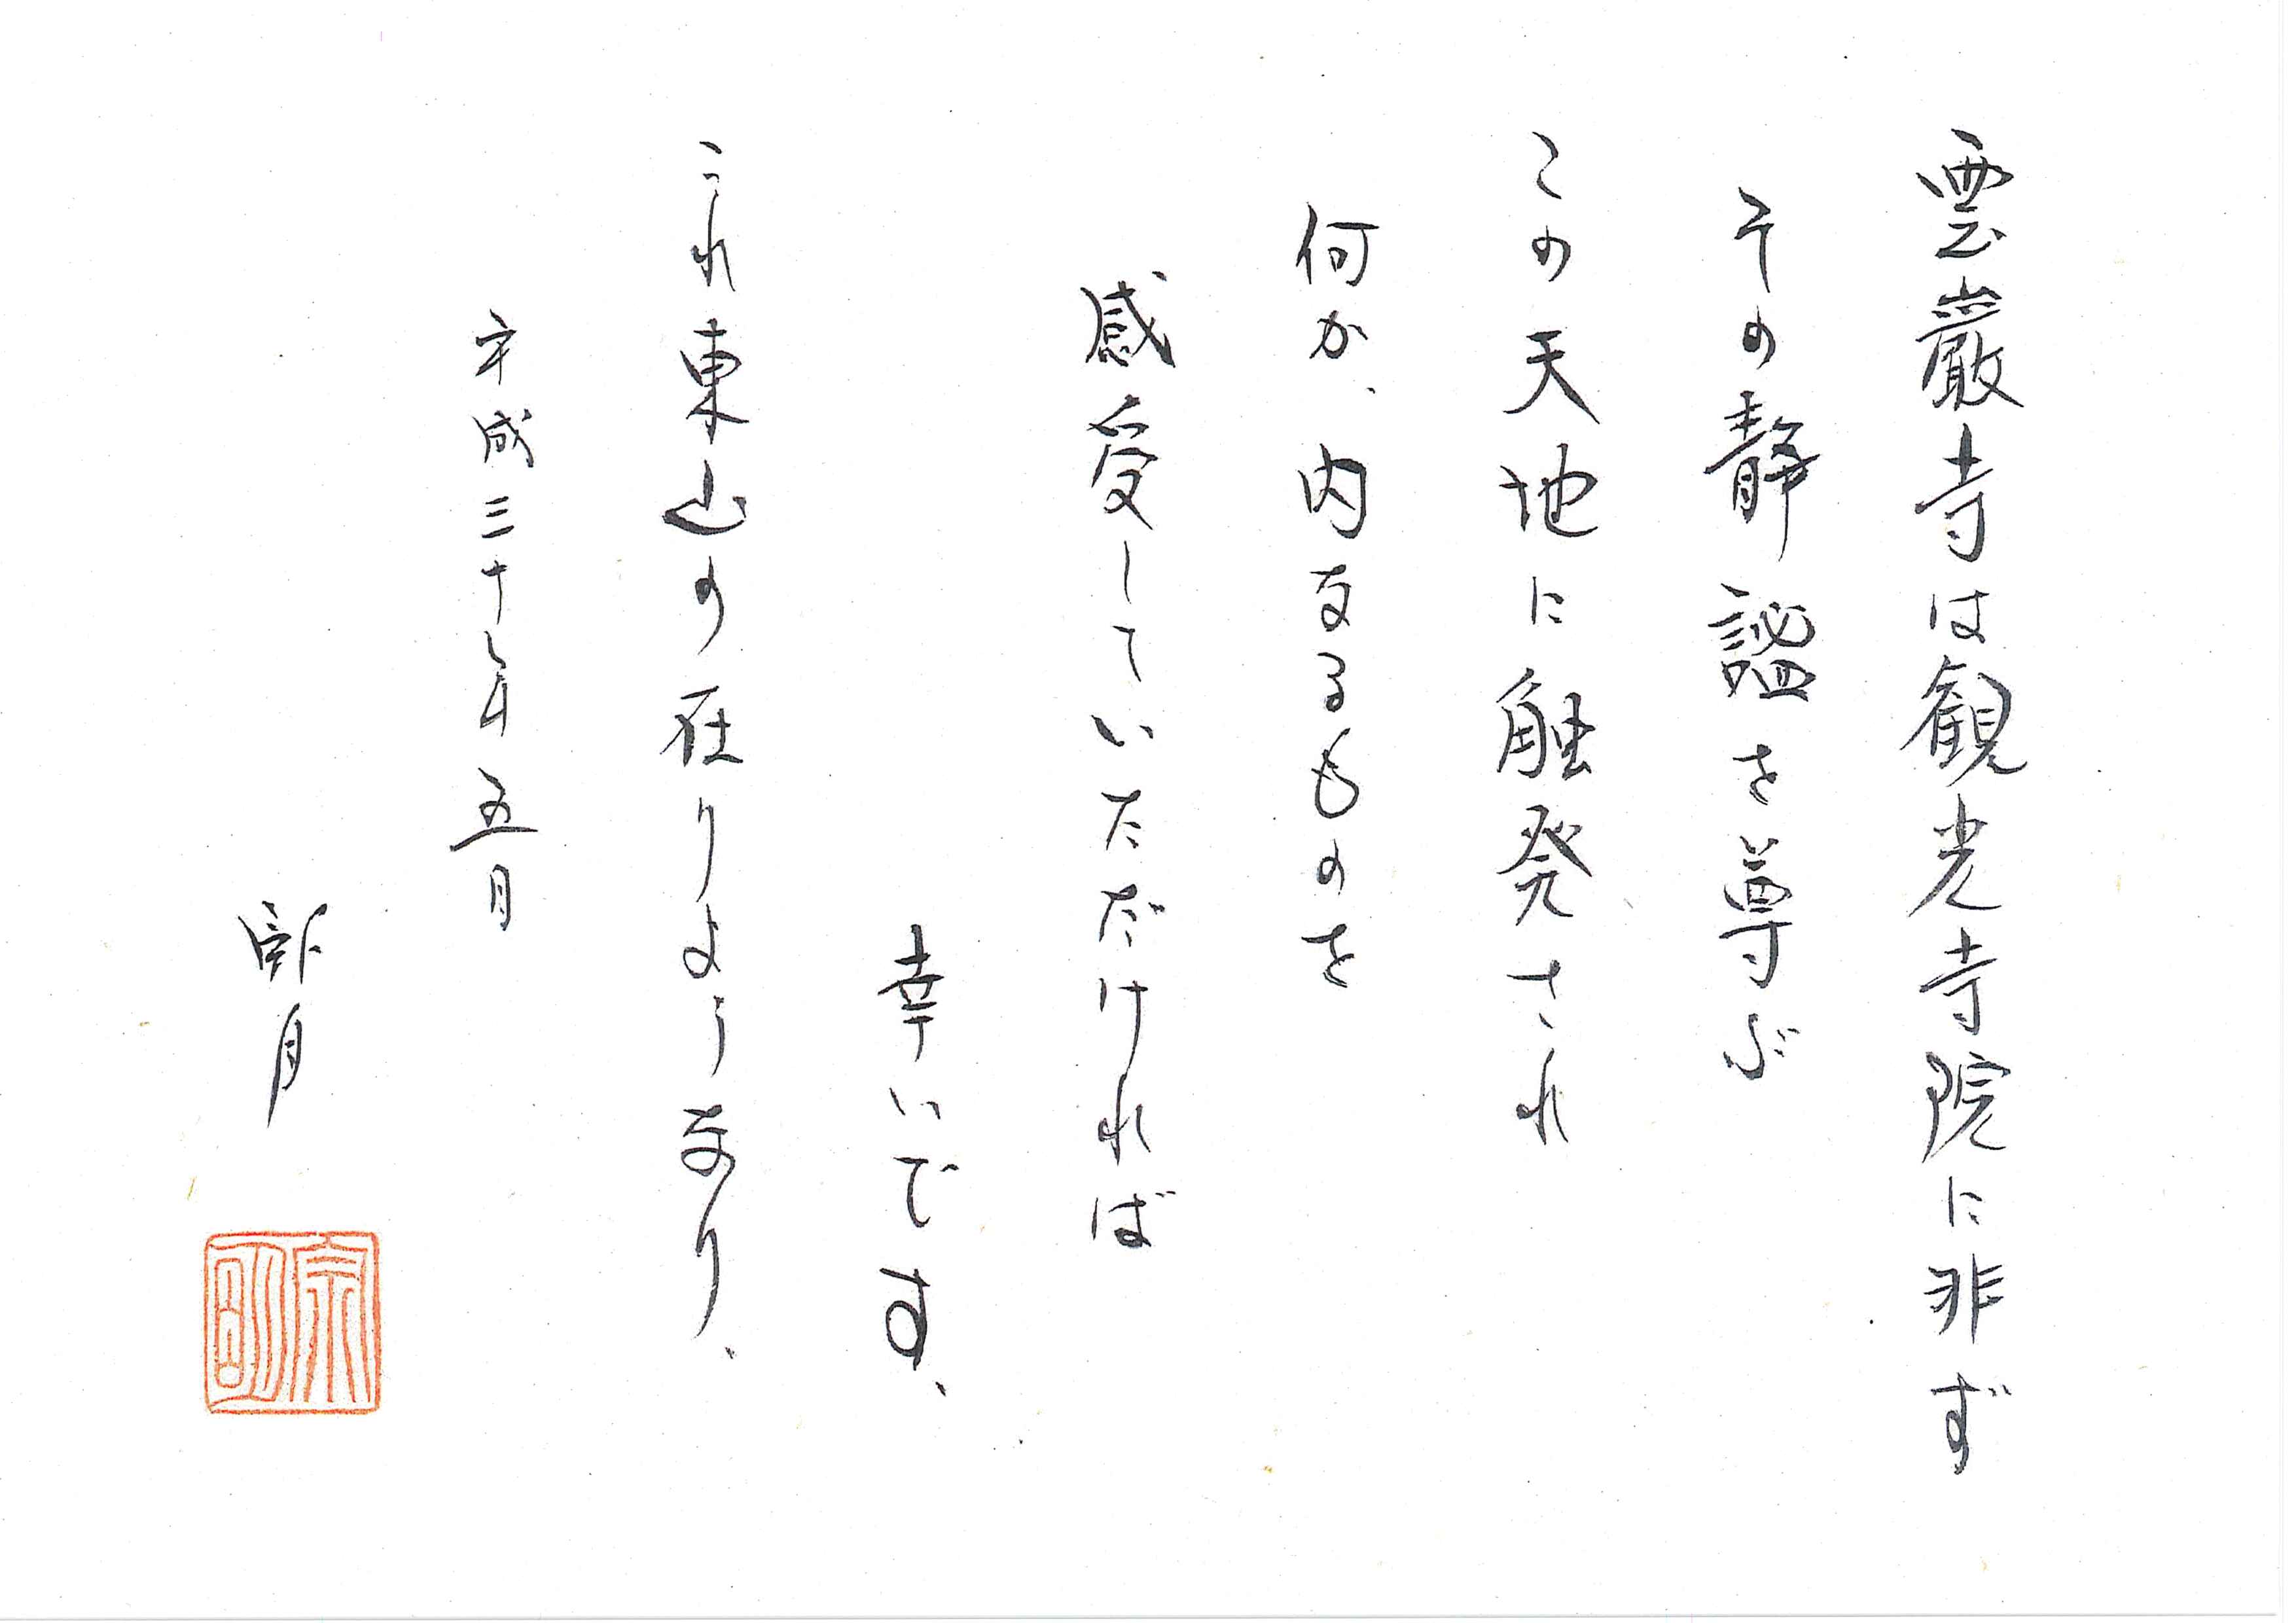 雲巖寺は観光寺院に非ず
その静謐を尊ぶ
この天地に触発され
何か、内なるものを
感受していただければ
幸いです、
これ東山の在りようなり、
平成三十年五月
臥月